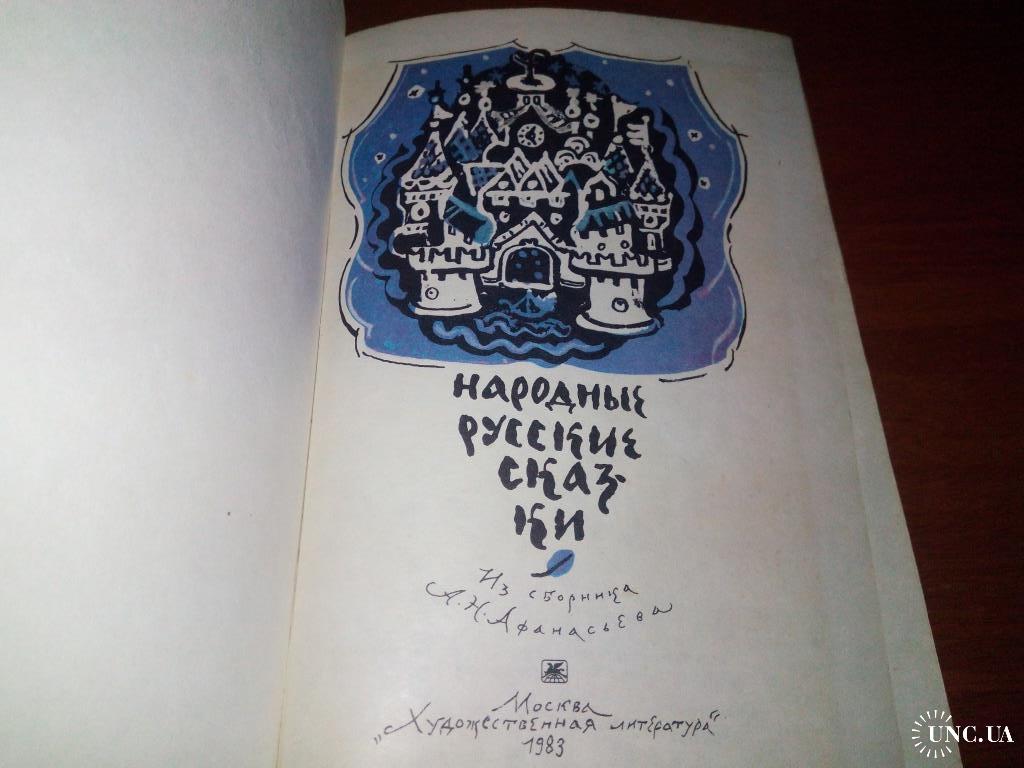 НАРОДНЫЕ
РУССКИЕ
СКАЗ-
КИ
Из сборника
А.Н.Афанасьева
Москва
„Художественная литература"
1983
UNC.UA